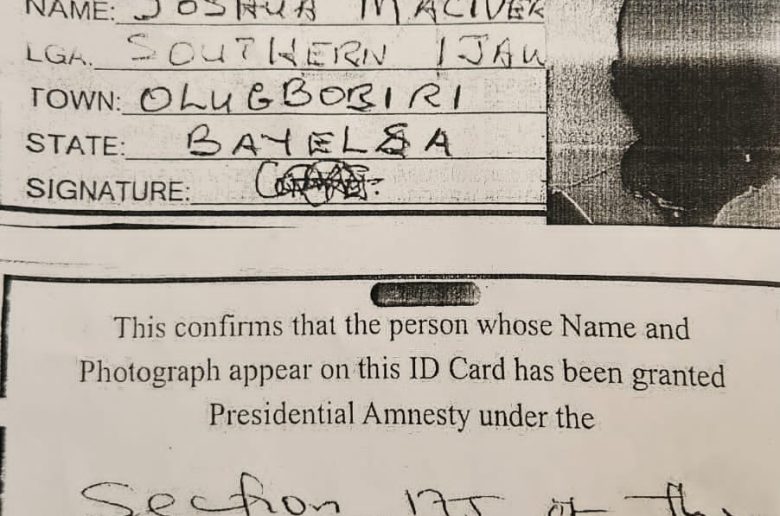 NAME: JOSHUA MACIVER
LGA. SOUTHERN IJAW
TOWN: OLUGBOBIRI
STATE: BAYELSA
SIGNATURE:
This confirms that the person whose Name and
Photograph appear on this ID Card has been granted
Presidential Amnesty under the
Section 175 of the